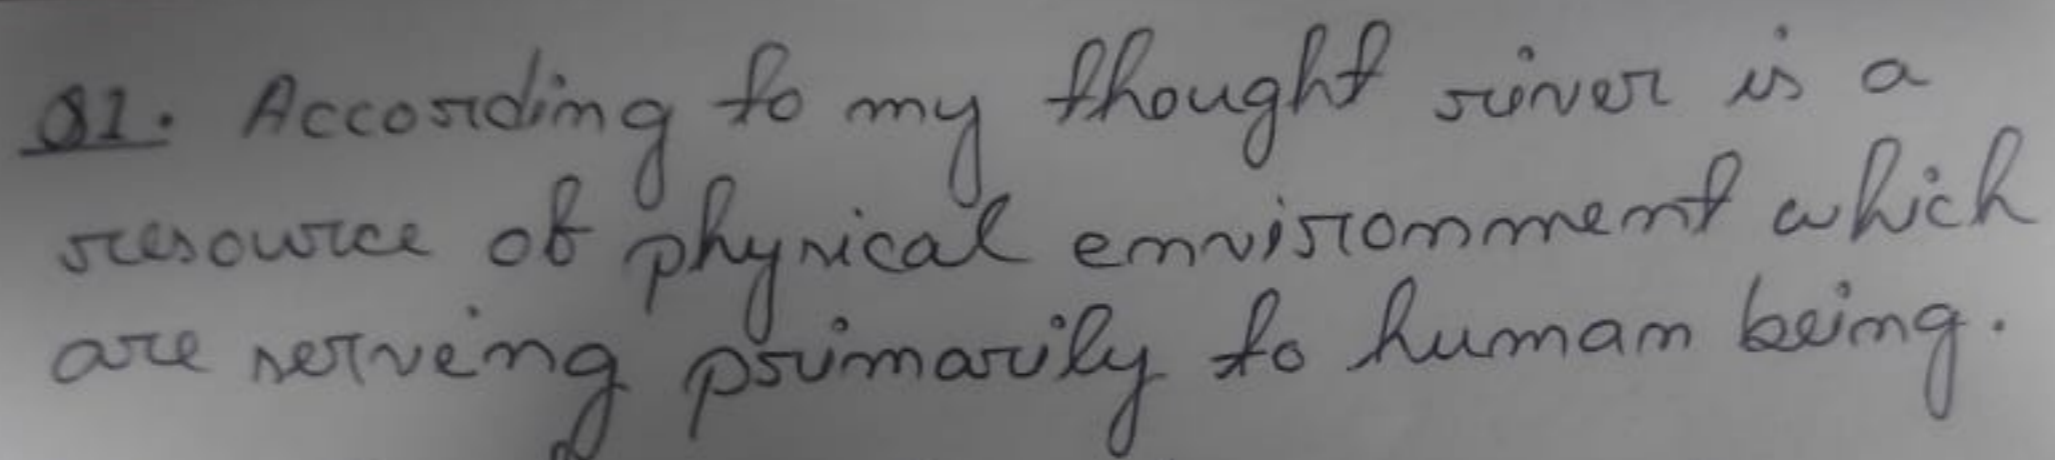 Q1. According to my thought river is a
resource of physical environment which
are serving primarily to human being.